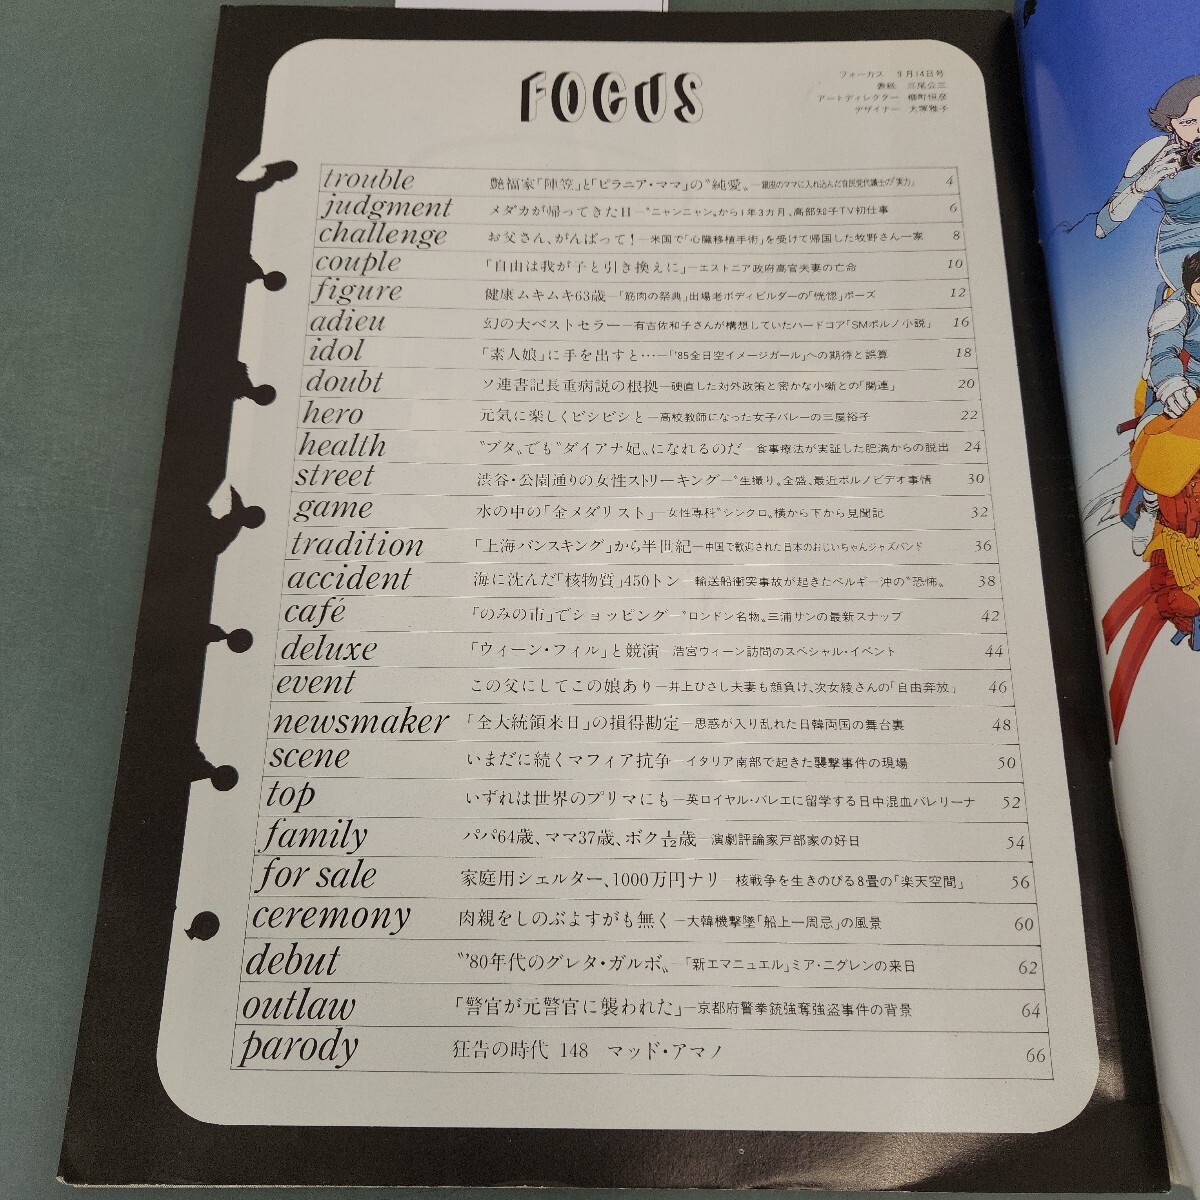 FOCUS
フォーカス 9月14日号
表紙 三尾公三
アートディレクター 柳町恒彦
デザイナー 大塚雅子
trouble 艶福家「陣笠」と「ピラニア・ママ」の〝純愛〟―銀座のママに入れ込んだ自民党代議士の「実力」 4
judgment メダカが帰ってきた日―〝ニャンニャン〟から1年3カ月、高部知子TV初仕事 6
challenge お父さん、がんばって！―米国で「心臓移植手術」を受けて帰国した牧野さん一家 8
couple 「自由は我が子と引き換えに」―エストニア政府高官夫妻の亡命 10
figure 健康ムキムキ63歳―「筋肉の祭典」出場老ボディビルダーの「恍惚」ポーズ 12
adieu 幻の大ベストセラー―有吉佐和子さんが構想していたハードコア「SMポルノ小説」 16
idol 「素人娘」に手を出すと…―「'85全日空イメージガール」への期待と誤算 18
doubt ソ連書記長重病説の根拠―硬直した対外政策と密かな小噺との「関連」 20
hero 元気に楽しくビシビシと―高校教師になった女子バレーの三屋裕子 22
health 〝ブタ〟でも〝ダイアナ妃〟になれるのだ―食事療法が実証した肥満からの脱出 24
street 渋谷・公園通りの女性ストリーキング―〝生撮り〟全盛、最近ポルノビデオ事情 30
game 水の中の「金メダリスト」―女性専科〝シンクロ〟横から下から見聞記 32
tradition 「上海バンスキング」から半世紀―中国で歓迎された日本のおじいちゃんジャズバンド 36
accident 海に沈んだ「核物質」450トン―輸送船衝突事故が起きたベルギー沖の〝恐怖〟 38
café 「のみの市」でショッピング―〝ロンドン名物〟三浦サンの最新スナップ 42
deluxe 「ウィーン・フィル」と競演―浩宮ウィーン訪問のスペシャル・イベント 44
event この父にしてこの娘あり―井上ひさし夫妻も顔負け、次女綾さんの「自由奔放」 46
newsmaker 「全大統領来日」の損得勘定―思惑が入り乱れた日韓両国の舞台裏 48
scene いまだに続くマフィア抗争―イタリア南部で起きた襲撃事件の現場 50
top いずれは世界のプリマにも―英ロイヤル・バレエに留学する日中混血バレリーナ 52
family パパ64歳、ママ37歳、ボク1/12歳―演劇評論家戸部家の好日 54
for sale 家庭用シェルター、1000万円ナリ―核戦争を生きのびる8畳の「楽天空間」 56
ceremony 肉親をしのぶよすがも無く―大韓機撃墜「船上一周忌」の風景 60
debut 〝'80年代のグレタ・ガルボ〟―「新エマニュエル」ミア・ニグレンの来日 62
outlaw 「警官が元警官に襲われた」―京都府警拳銃強奪強盗事件の背景 64
parody 狂告の時代 148 マッド・アマノ 66